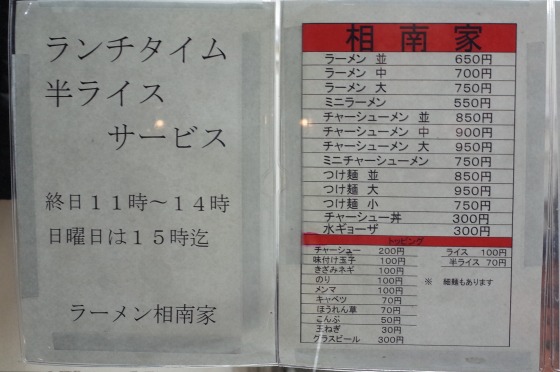 ランチタイム
半ライス
サービス
終日11時～14時
日曜日は15時迄
ラーメン相南家
相南家
ラーメン 並 650円
ラーメン 中 700円
ラーメン 大 750円
ミニラーメン 550円
チャーシューメン 並 850円
チャーシューメン 中 900円
チャーシューメン 大 950円
ミニチャーシューメン 750円
つけ麺 並 850円
つけ麺 大 950円
つけ麺 小 750円
チャーシュー丼 300円
水ギョーザ 300円
トッピング
チャーシュー 200円 ライス 100円
味付け玉子 100円 半ライス 70円
きざみネギ 100円
のり 100円 ※ 細麺もあります
メンマ 100円
キャベツ 70円
ほうれん草 70円
こんぶ 50円
玉ねぎ 30円
グラスビール 300円